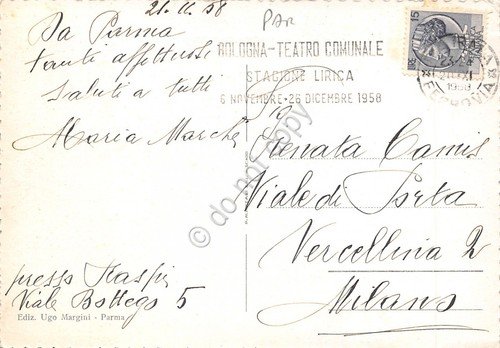 21.11.58
PAR
Da Parma
tanti affettuosi
saluti a tutti
Maria Marchi
BOLOGNA-TEATRO COMUNALE
STAGIONE LIRICA
6 NOVEMBRE-26 DICEMBRE 1958
15
Renata Camis
Viale di Porta
Vercellina 2
Milano
presso
Viale Bottego 5
Ediz. Ugo Margini - Parma
do not copy